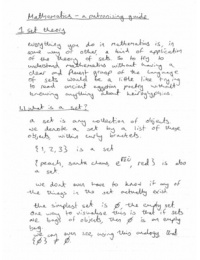 Mathematics - a patronising guide
1 Set theory
everything you do in mathematics is, in
some way or other, a kind of application
of the theory of sets. So to try to
understand mathematics without having a
clear and firm grasp of the language
of sets would be a little like trying
to read ancient egyptian poetry without
knowing anything about hieroglyphics
What is a set?
a set is any collection of objects
we denote a set by a list of those
objects within curly brackets
{1, 2, 3} is a set
{peach, santa claus, red} is also
a set
we dont even have to know if any of
the things in the set actually exist
the simplest set is ∅, the empty set
One way to visualise this is that if sets
are bags of objects then ∅ is an empty
bag
we can even see, using this analogy that
{∅} ≠ ∅